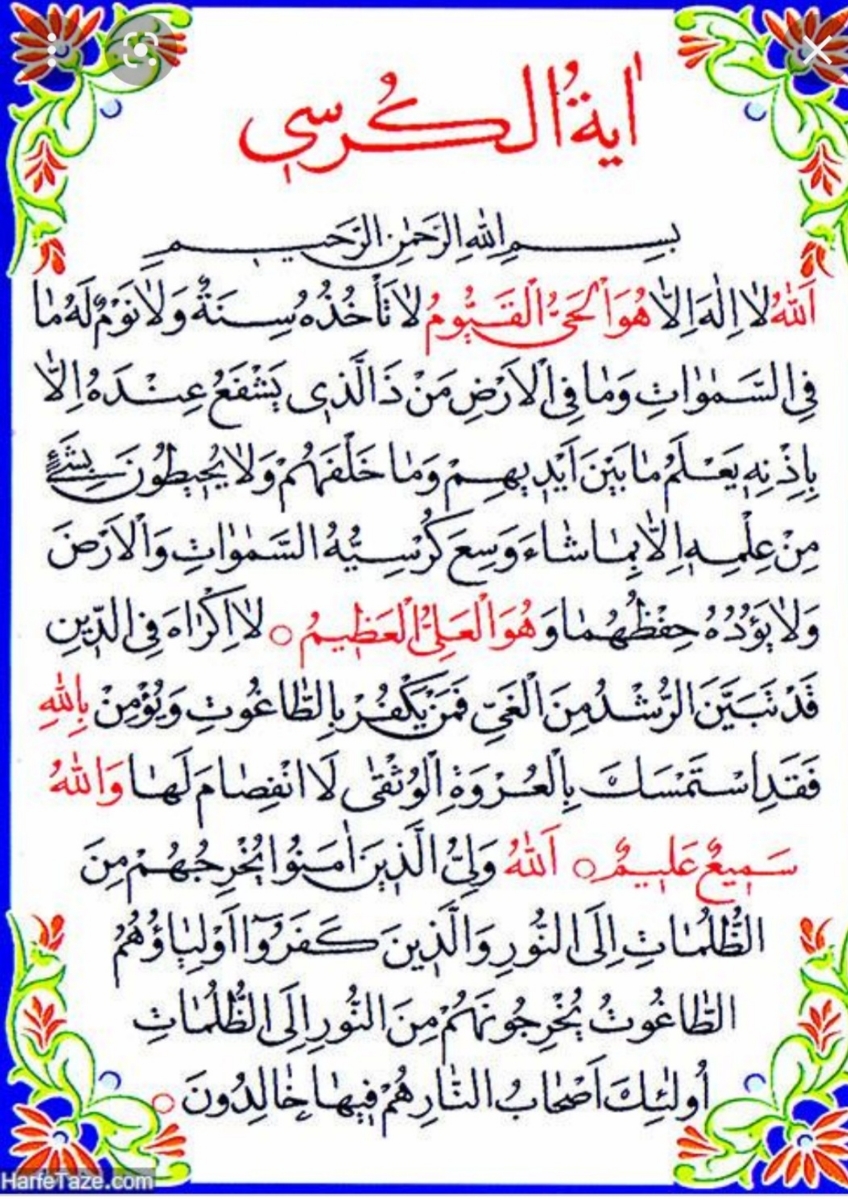 اٰيةُ الكُرسي
بِسمِ اللهِ الرَّحمٰنِ الرَّحيمِ
اَللهُ لا اِلٰهَ اِلاّٰ هُوَ اْلحَيُّ القَيُّومُ لا تَأْخُذُهُ سِنَةٌ وَلا نَوْمٌ لَهُ مٰا
فِي السَّمٰوٰاتِ وَمٰا فِي اْلاَرْضِ مَنْ ذَا الَّذي يَشْفَعُ عِنْدَهُ اِلاّٰ
بِاِذْنِهِ يَعْلَمُ مٰا بَيْنَ اَيْديهِمْ وَمٰا خَلْفَهُمْ وَلا يُحيطُونَ بِشَيْءٍ
مِنْ عِلْمِهِ اِلاّٰ بِمٰا شٰاءَ وَسِعَ كُرْسِيُّهُ السَّمٰوٰاتِ وَاْلاَرْضَ
وَلا يَؤُدُهُ حِفْظُهُمٰا وَ هُوَ الْعَلِيُّ الْعَظيمُ ○ لا اِكْرٰاهَ فِي الدّينِ
قَدْ تَبَيَّنَ الرُّشْدُ مِنَ الْغَيِّ فَمَنْ يَكْفُرْ بِالطّٰاغُوتِ وَيُؤْمِنْ بِاللهِ
فَقَدِ اسْتَمْسَكَ بِالْعُرْوَةِ الْوُثْقٰى لَا انْفِصٰامَ لَهٰا وَاللهُ
سَميعٌ عَليمٌ ○ اَللهُ وَلِيُّ الَّذينَ اٰمَنُوا يُخْرِجُهُمْ مِنَ
الظُّلُمٰاتِ اِلَى النُّورِ وَالَّذينَ كَفَرُوٓا اَوْلِيٰاؤُهُمُ
الطّٰاغُوتُ يُخْرِجُونَهُمْ مِنَ النُّورِ اِلَى الظُّلُمٰاتِ
اُولٰئِكَ اَصْحٰابُ النّٰارِ هُمْ فيهٰا خٰالِدُونَ ○
HarfeTaze.com